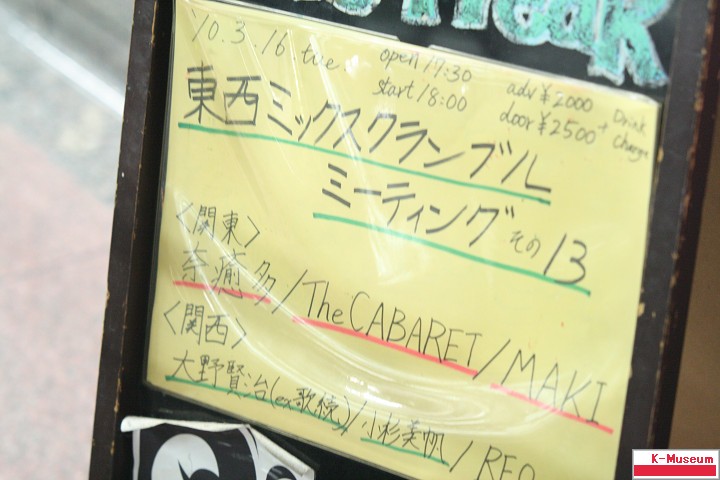 10.3.16 tue.
open 17:30
start 18:00
adv ¥2000
door ¥2500
+ Drink Charge
東西ミックスクランブル
ミーティング その13
〈関東〉
奈癒多/The CABARET/MAKI
〈関西〉
大野賢治(ex歌績)/小杉美帆/REO
K-Museum